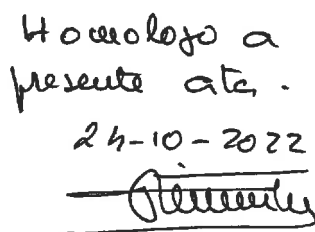 Homologo a
presente ata.
24-10-2022